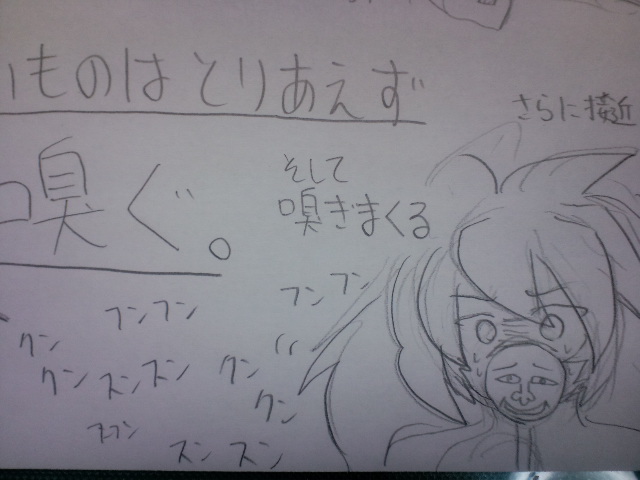 いものはとりあえず
嗅ぐ。
さらに接近
そして
嗅ぎまくる
フンフン
フンフン
クン
クン
スンスン
クン
クン
スンスン